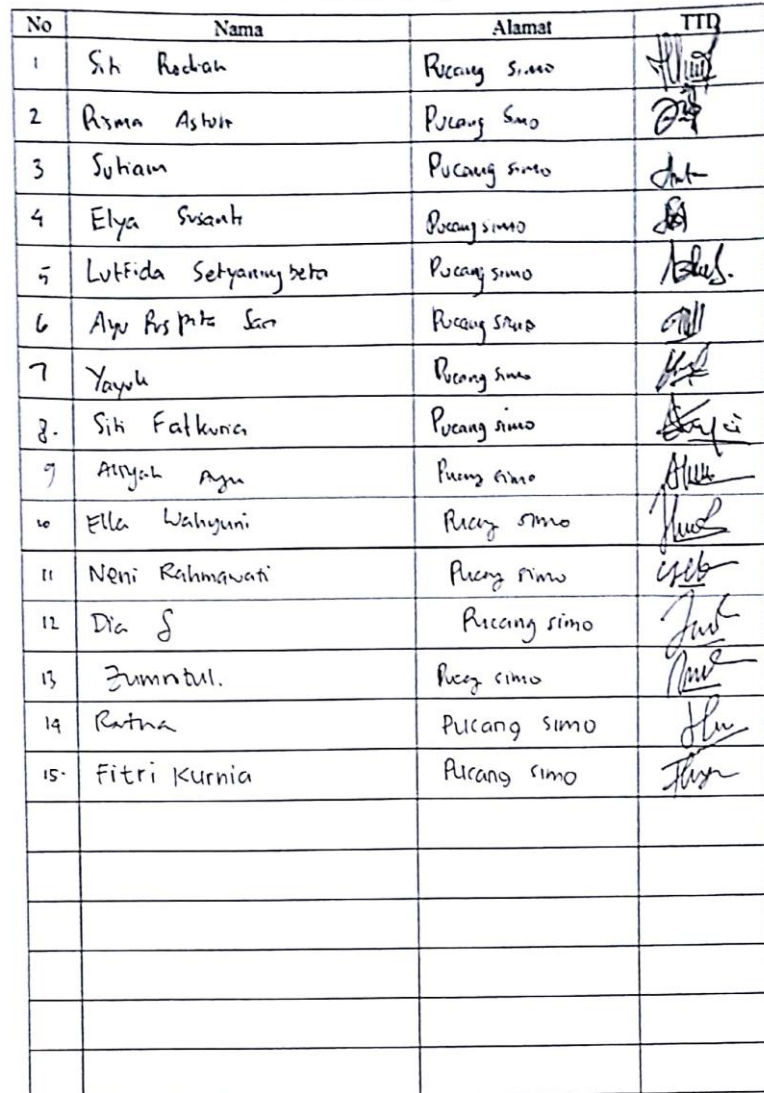 No Nama Alamat TTD
1 Siti Rodiah Pucang simo
2 Risma Astuti Pucang Simo
3 Sutiam Pucang simo
4 Elya Susanti Pucang simo
5 Lutfida Setyaning Pucang simo
6 Ayu Puspita Sari Pucang simo
7 Yayuk Pucang simo
8. Siti Fatkuria Pucang simo
9 Ayu Pucang simo
10 Ella Wahyuni Pucang simo
11 Neni Rahmawati Pucang simo
12 Dia S Pucang simo
13 Zumrotul. Pucang simo
14 Ratna Pucang simo
15. Fitri Kurnia Pucang simo